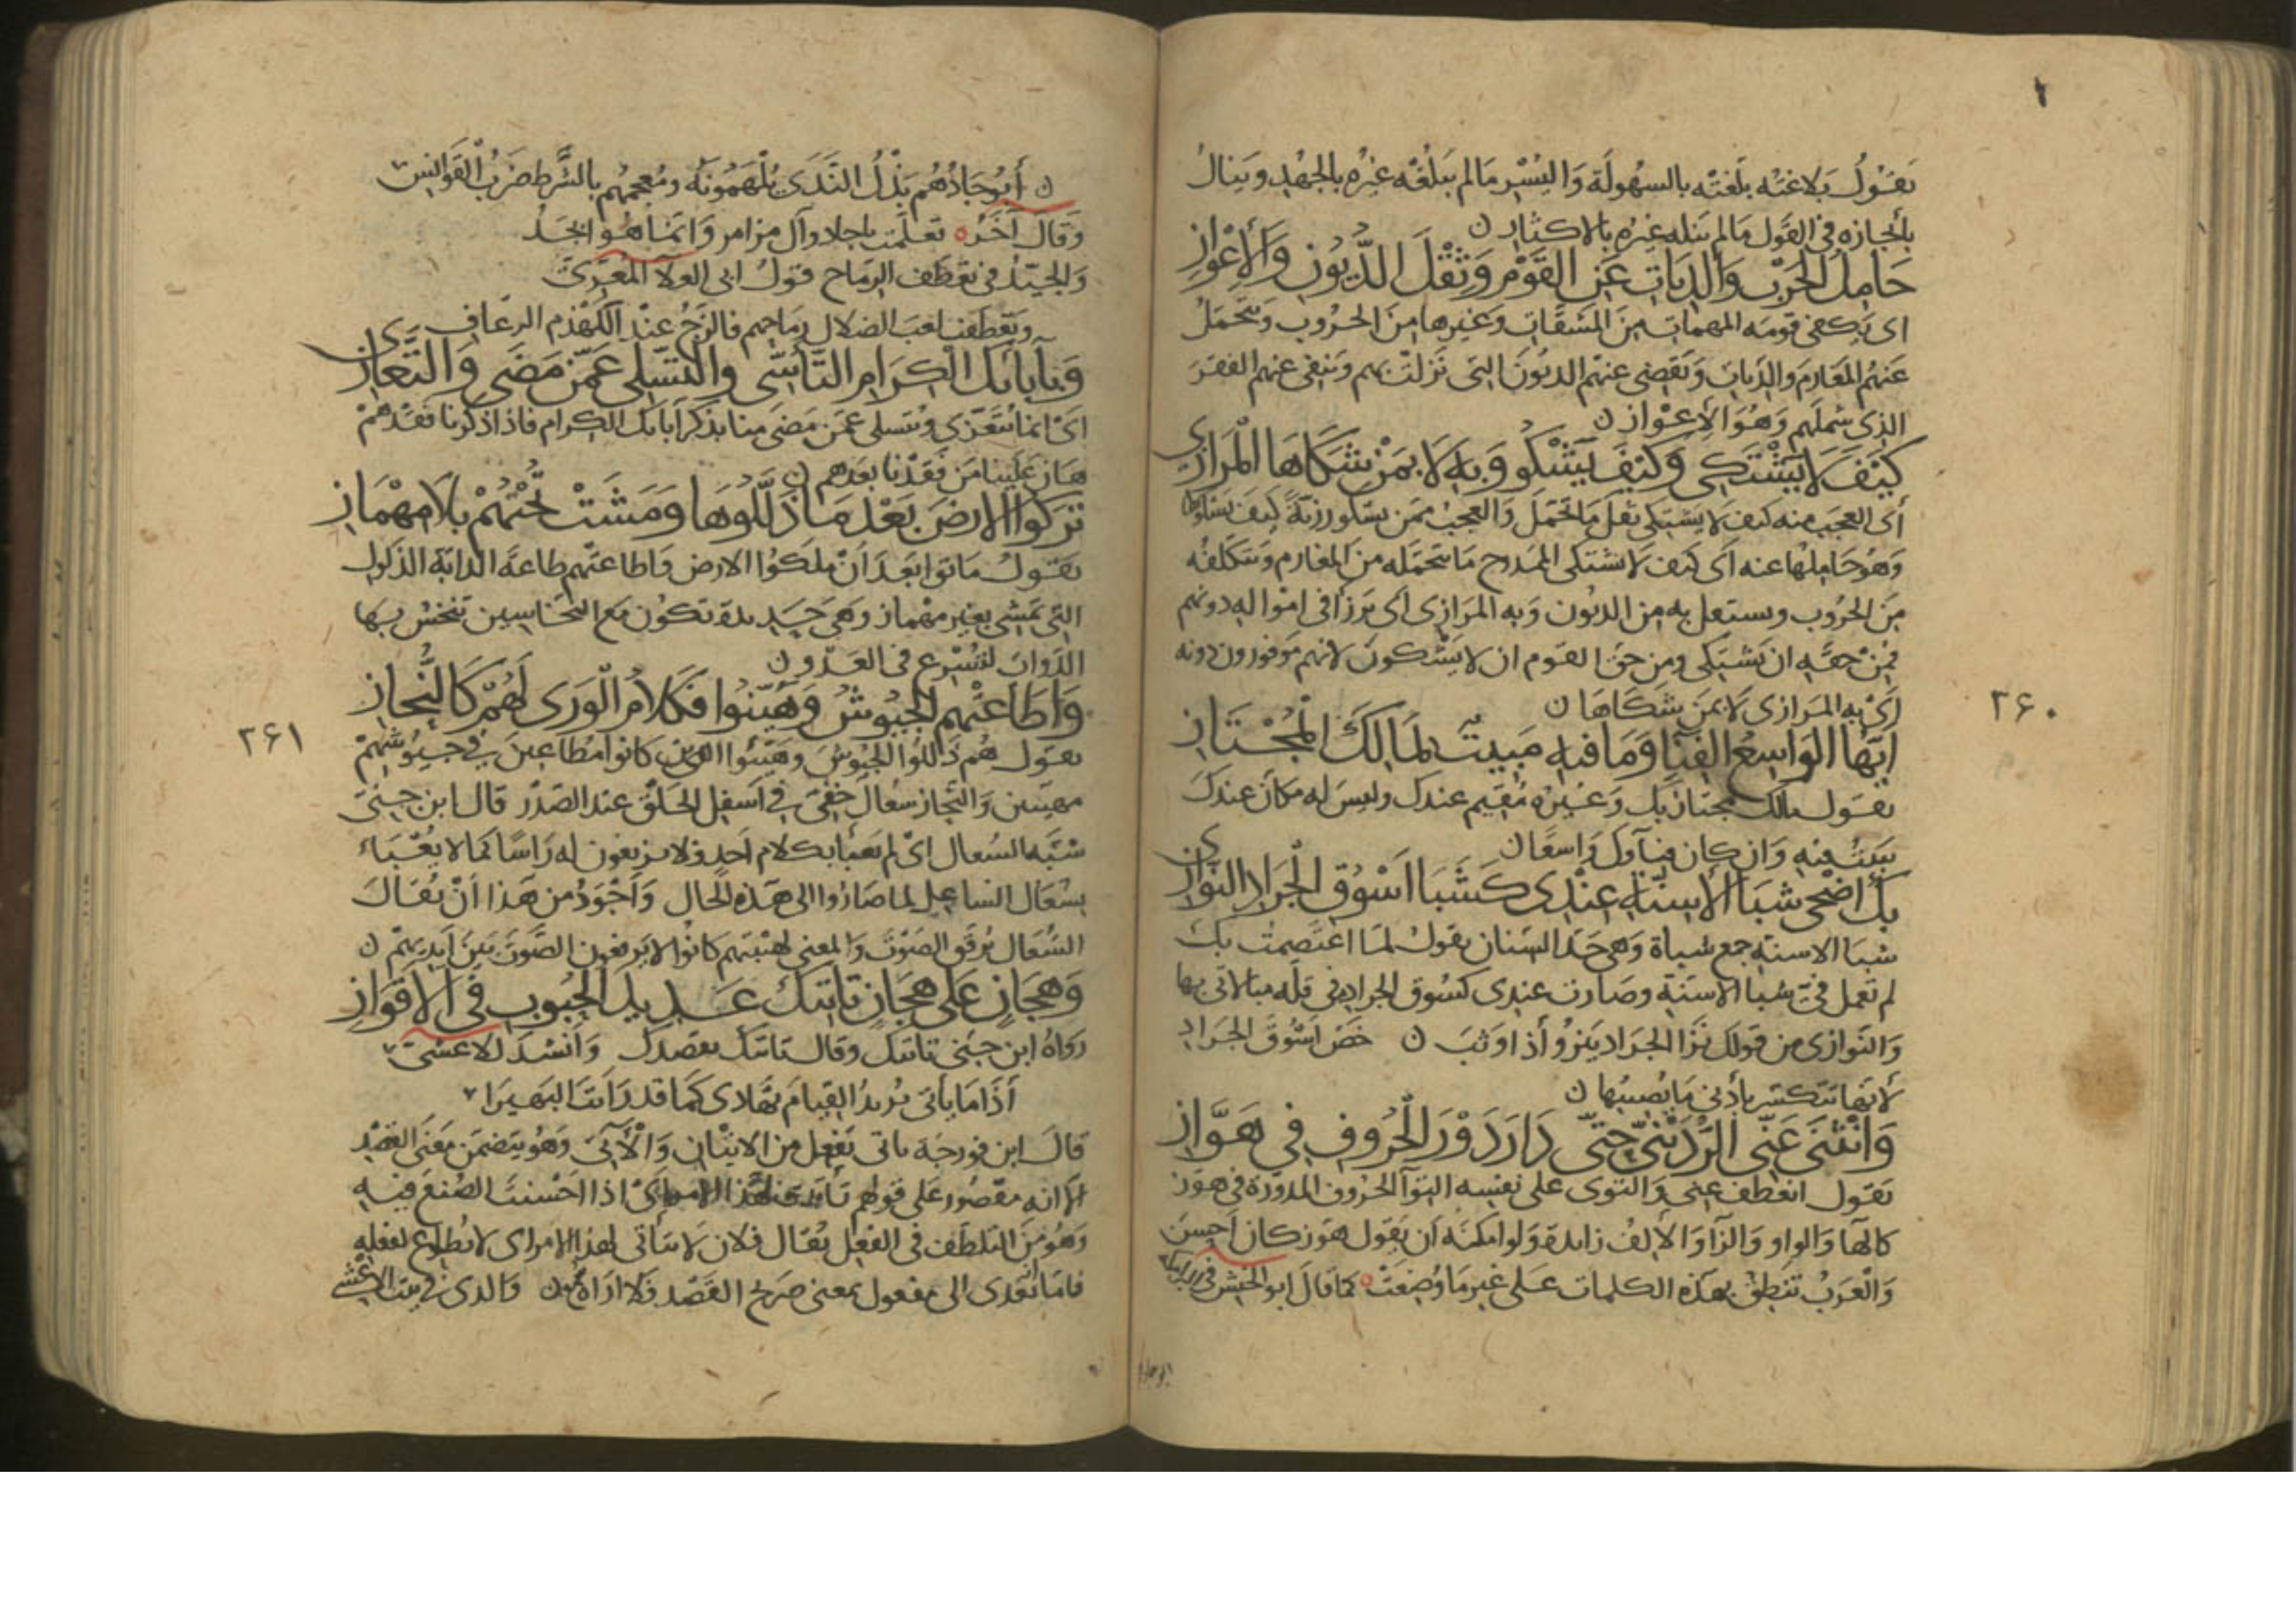 تقول بلاغته بلغته بالسهولة واليسر ما لم يبلغه غيره بالجهد وينال
بايجازه في القول ما لم ينله غيره بالاكثار ن
حامل الحرب والديات عن القوم وثقل الديون والاعواز
اى يكفى قومه المهمات من المشقات وغيرها من الحروب ويتحمل
عنهم المغارم والديات ويقضى عنهم الديون التى نزلت بهم وينفى عنهم الفقر
الذى شملهم وهو الاعواز ن
كيف لا يشتكى وكيف يشكو وبه لا بمن شكاها المرازى
أى العجب منه كيف لا يشتكى ثقل ما تحمل والعجب ممن يشكو رزية كيف يشكوها
وهو حاملها عنه اى كيف لا يشتكى الممدوح ما يتحمله من المغارم ويتكلفه
من الحروب ويستعل به من الديون وبه المرازى اى يرزأ فى امواله دونهم
فمن حقه ان يشتكى ومن حق القوم ان لا يشكون لانهم موفورون دونه
اى به المرازى لا بمن شكاها ن
ايها الواسع الفنا وما فيه مبيت لمالك المجتاز
تقول مالك مجتاز بك وغيره مقيم عندك وليس له مكان عندك
يبيت فيه وان كان فناؤك واسعا ن
بك اضحى شبا الاسنة عندى كشبا اسوق الجراد النوازى
شبا الاسنة جمع شباة وهى حد السنان يقول لما اعتصمت بك
لم تعمل فىّ شبا الاسنة وصارت عندى كسوق الجراد فى قلة مبالاتى بها
والنوازى من قولك نزا الجراد ينزو أذا وثب ن خص اسوق الجراد
لأنها تتكسر بأدنى ما يصيبها ن
وانثنى عنى الردينى حتى دار دور الحروف في هواز
تقول انعطف عنى والتوى على نفسه التوآ الحروف المدورة فى هوز
كالهآ والواو والزا والالف زايدة ولو امكنه أن يقول هوز كان احسن
والعرب تنطق بهذه الكلمات على غير ما وضعت كما قال ابو الحنش في البرامكة
ابوجاد
٢٦٠
ن أبوجادهم بذل الندى يلهمونه ومعجمهم بالشرط ضرب القوانس
وقال آخر تعلمت باجادا وآل مرامر وانما هو ابجد
والجيد فى تعطف الرماح قول ابى العلآ المعرى
وتعطفت لعب الضلال رماحهم فالزج عند اللهذم الرعاف
وبآبائك الكرام التأسى والتسلى عمن مضى والتعازى
اى انما نتعزى ونتسلى عمن مضى منا بذكر آبائك الكرام فاذا ذكرنا فقدهم
هان علينا من فقدنا بعدهم ن
تركوا الارض بعد ما ذللوها ومشت تحتهم بلا مهماز
يقول ماتوا بعد أن ملكوا الارض واطاعتهم طاعة الدابة الذلول
التى تمشى بغير مهماز وهى حديدة تكون مع النخاسين تنخس بها
الدواب لتسرع فى العدو ن
واطاعتهم الجيوش وهيبوا فكلام الورى لهم كالنحاز
يقول هم ذللوا الجيوش وهيبوا اى كانوا مطاعين في جيوشهم
مهيبين والنحاز سعال خفى في اسفل الحلق عند الصدر قال ابن جنى
شبه السعال اى لم يعبأ بكلام احد ولا يرفعون له راسا كما لا يعباء
بسعال الساعل لما صاروا الى هذه الحال وأجود من هذا أن يقال
السعال يرقق الصوت والمعنى لهيبتهم كانوا لا يرفعون الصوت بين ايديهم ن
وهجان على هجان تايتك عديد الحبوب فى الاقواز
رواه ابن جنى تايتك وقال تايتك بقصدك وانشد للاعشى
أذا ما يأتى يريد القيام تهادى كما قد رايت البهيرا
قال ابن فورجه تاتى تفعل من الاتيان والأتى وهو يتضمن معنى القصد
الا انه مقصور على قولهم تأيت لهذا الامر اى اذا احسنت الصنع فيه
وهو من التلطف فى الفعل يقال فلان لا يتأتى لهذا الامر اى لا يطاوع لفعله
فاما تعدى الى مفعول بمعنى صريح القصد فلا اراه والذى فى بيت الاعشى
٢٦١